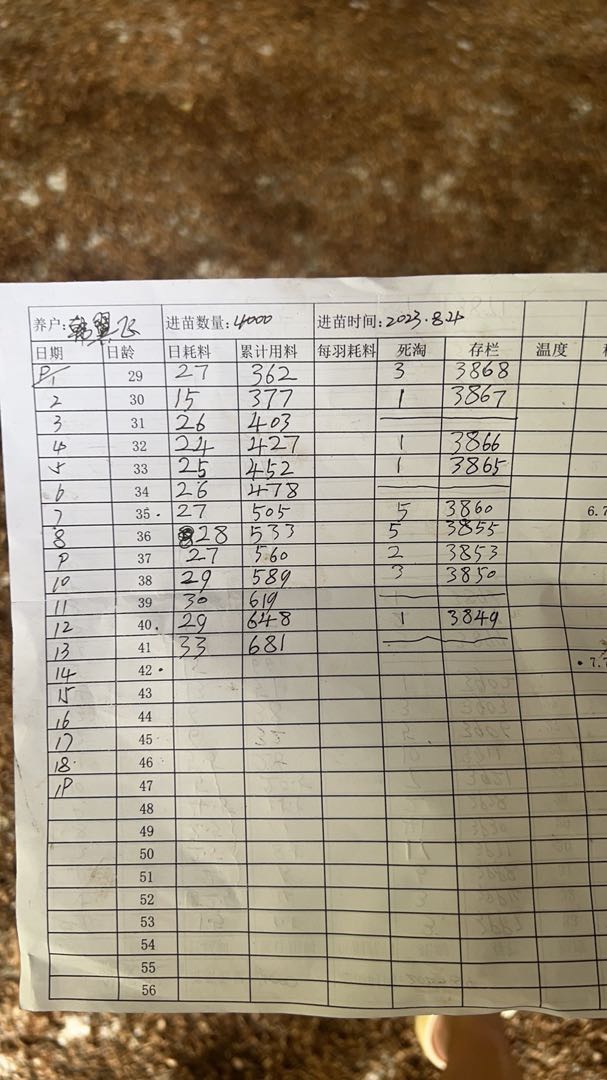 养户:韩翼飞 进苗数量:4000 进苗时间:2023.8.24
日期 日龄 日耗料 累计用料 每羽耗料 死淘 存栏 温度
9/1 29 27 362 3 3868
2 30 15 377 1 3867
3 31 26 403
4 32 24 427 1 3866
5 33 25 452 1 3865
6 34 26 478
7 35 27 505 5 3860 6.7
8 36 28 533 5 3855
9 37 27 560 2 3853
10 38 29 589 3 3850
11 39 30 619
12 40 29 648 1 3849
13 41 33 681
14 42 7.7
15 43
16 44
17 45
18 46
19 47
48
49
50
51
52
53
54
55
56